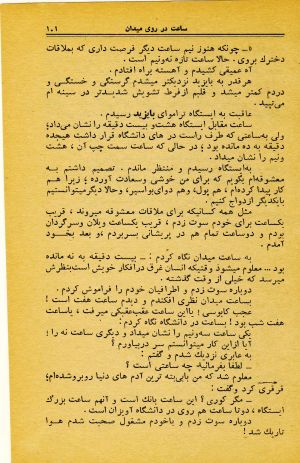 ساعت در روی میدان
۱۰۱
«ـ چونکه هنوز نیم ساعت دیگر فرصت داری که بملاقات
دخترك بروی . حالا ساعت تازه نه‌ونیم است .
آه عمیقی کشیدم و آهسته براه افتادم .
هرقدر به بایزید نزدیکتر میشدم گرسنگی و خستگی و
دردم کمتر میشد و قلبم ازفرط تشویش شدیدتر در سینه ام
می‌تپید .
عاقبت به ایستگاه تراموای بایزید رسیدم .
ساعت مقابل ایستگاه هشت‌و بیست دقیقه را نشان می‌داد؛
ولی به‌ساعتی که طرف راست در های دانشگاه قرار داشت هیجده
دقیقه به ده مانده بود ؛ در حالی که ساعت سمت چپ آن ، هشت
ونیم را نشان میداد .
به‌ایستگاه رسیدم و منتظر ماندم . تصمیم داشتم به
معشوقه‌ام بگویم که برای من خوشی وسعادت آورده ؛ زیرا هم
کار پیدا کرده‌ام ، هم پول، وهم دوای‌بواسیر، وحالا دیگرمیتوانستیم
بایکدیگر ازدواج کنیم .
مثل همه کسانیکه برای ملاقات معشوقه میروند ، قریب
یکساعت برای خودم سوت زدم ، قریب یکساعت ویلان وسرگردان
بودم و دوساعت تمام هم در پریشانی بسربردم و بعد بخود
آمدم .
به ساعت میدان نگاه کردم : ـ بیست دقیقه به نه مانده
بود ... معلوم میشود وقتیکه انسان غرق درافکار خویش است‌بنظرش
میرسد که خیلی از وقت گذشته .
دوباره سوت زدم و اطرافیان خودم را فراموش کردم .
بساعت میدان نظری افکندم و دیدم ساعت هفت است !
عجب کابوسی ! یااین ساعت عقب‌عقبکی میرفت ، یاساعت
هفت شب بود ! بساعت در دانشگاه نگاه کردم :
یکی ساعت سه‌ونیم را نشان میداد و دیگری ساعت نه را ؛
آیا ازاین کار میتوانستم سر دربیاورم ؟
به عابری نزدیك شدم و گفتم :
ـ لطفا بفرمائید چه ساعتی است ؟
معلوم شد که من بابی‌تربیت ترین آدم های دنیا روبروشده‌ام؛
قرقری کرد وگفت :
ـ مگر کوری ؟ این ساعت بانك است و آنهم ساعت بزرك
ایستگاه ، دوتا ساعت هم روی در دانشگاه آویزان است .
دوباره سوت زدم و باخودم مشغول صحبت شدم هوا
تاریك شد !